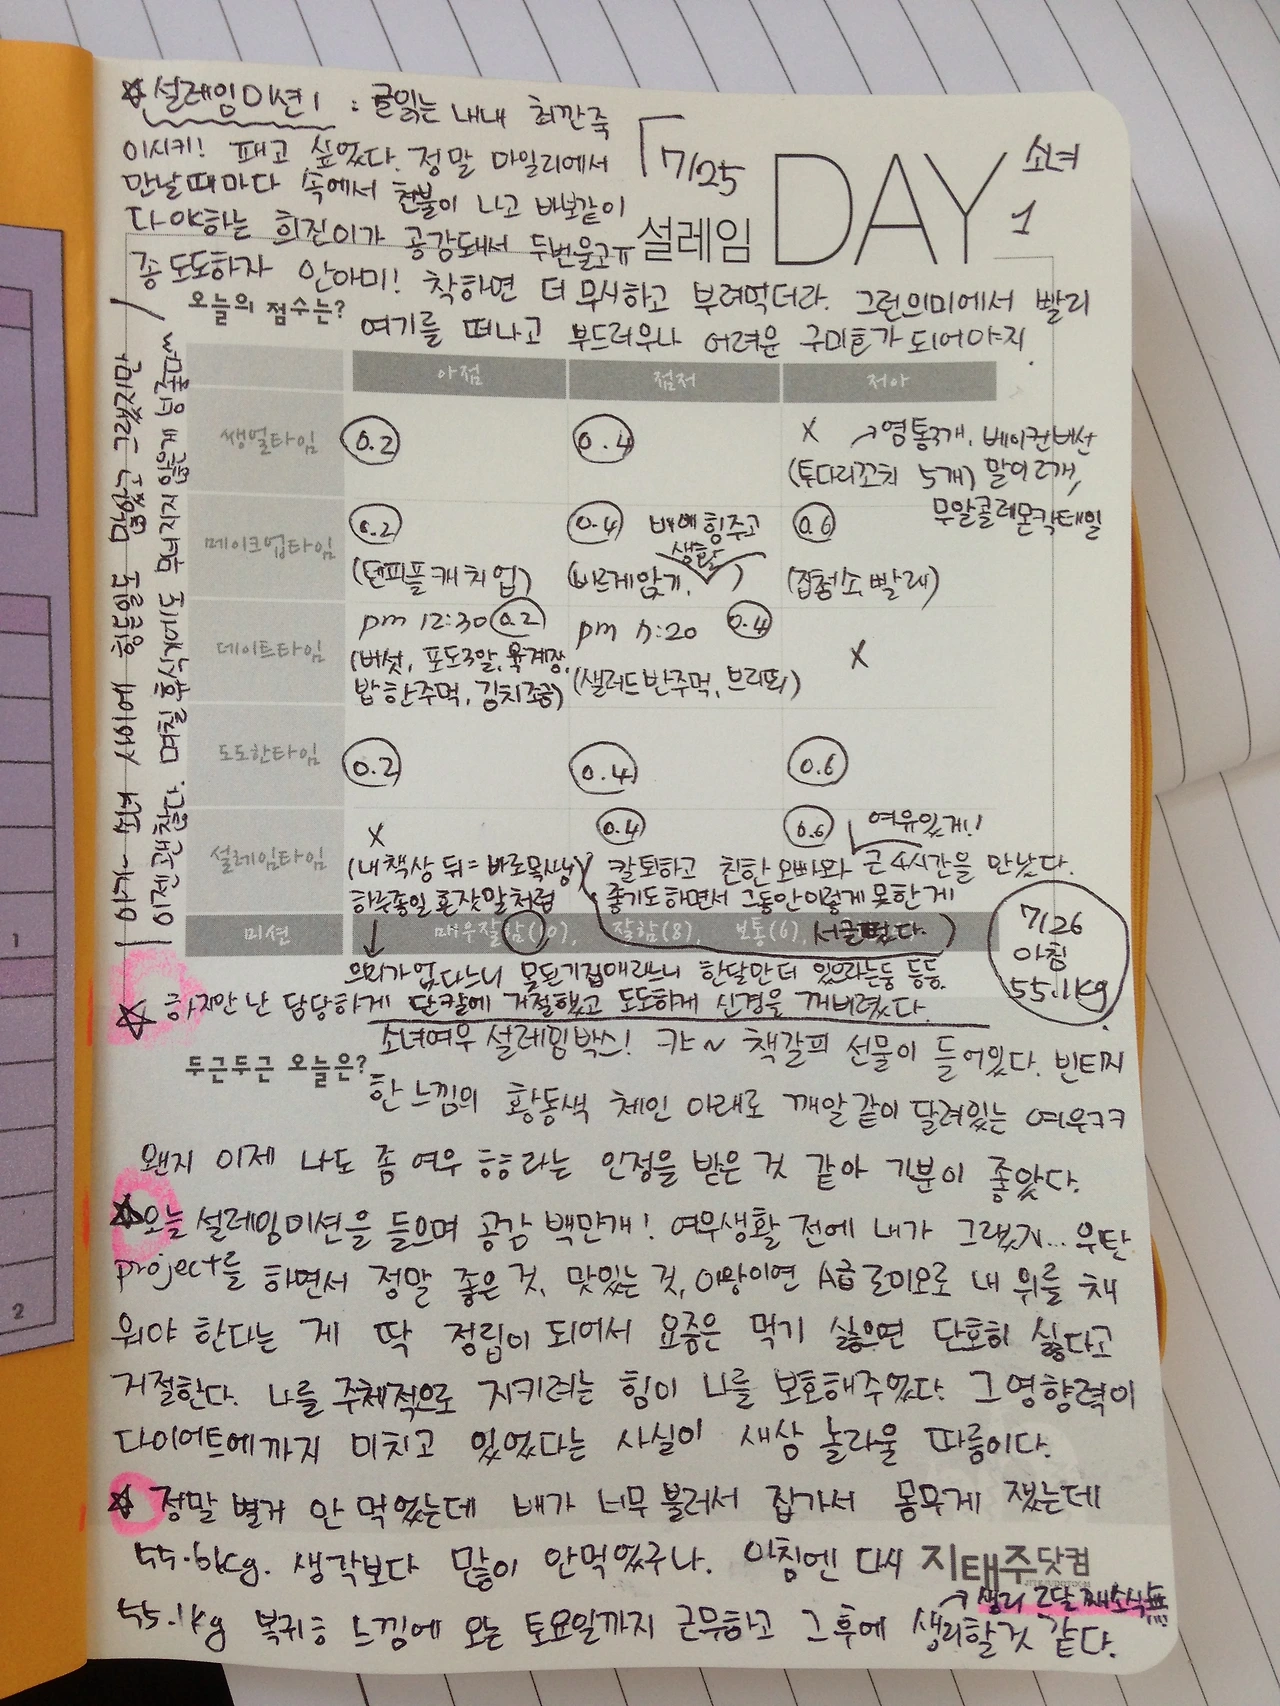 ☆ 설레임미션1 : 글읽는 내내 최깐죽
이시키! 패고 싶었다. 정말 마일리에서
만날때마다 속에서 천불이 나고 바보같이
다야하는 희진이가 공감돼서 두번울고ㅠ
「7/25
설레임 DAY 1
소녀
좀 도도하자 안아미! 착하면 더 무시하고 부려먹더라. 그런의미에서 빨리
오늘의 점수는?
여기를 떠나고 부드러우나 어려운 구미호가 되어야지.
아점 점저 저아
쌩얼타임 0.2 0.4 X →염통3개, 베이컨버섯
(투다리꼬치 5개) 말이2개,
무알콜레몬칵테일
메이크업타임 0.2 0.4 배에 힘주고 0.6
생활
(텐피플캐치업) (바르게앉기, ) (집청소,빨래)
데이트타임 pm 12:30 0.2 pm 5:20 0.4 X
(버섯, 포도3알, 육계장, (샐러드반주먹, 브리또)
밥한주먹, 김치조금)
도도한타임 0.2 0.4 0.6
설레임타임 X 0.4 0.6 여유있게!!
(내책상 뒤=바로목쌤 칼퇴하고 친한 오빠와 근 4시간을 만났다.
하루종일 혼잣말처럼 좋기도하면서 그동안이렇게 못한게
미션 매우잘함(10), 잘함(8), 보통(6), 서글펐다.)
의리가 없다느니 못된기집애라느니 한달만더 있으라는둥 등등.
☆ 하지만 난 담당하게 단칼에 거절했고 도도하게 신경을 꺼버렸다.
7/26
아침
55.1kg
아가~소녀 사이에 힘든일도 많았고 그랬지만
이젠괜찮다. 며칠 휴식에도 무너지지 않을게 넝쿨~
두근두근 오늘은?
소녀여우 설레임박스! 캬~ 책갈피 선물이 들어있다. 빈티지
한 느낌의 황동색 체인 아래로 깨알같이 달려있는 여우ㅋㅋ
왠지 이제 나도 좀 여우ㅎㅎ라는 인정을 받은 것 같아 기분이 좋았다.
☆오늘 설레임미션을 들으며 공감 백만개! 여우생활 전에 내가 그랬지... 우탄
project를 하면서 정말 좋은것, 맛있는 것, 이왕이면 A급 로미오로 내 위를 채
워야 한다는 게 딱 정립이 되어서 요즘은 먹기 싫으면 단호히 싫다고
거절한다. 나를 주체적으로 지키려는 힘이 나를 보호해주었다. 그 영향력이
다이어트에까지 미치고 있었다는 사실이 새삼 놀라울 따름이다.
☆ 정말 별거 안 먹었는데 배가 너무 불러서 집가서 몸무게 쟀는데
55.6kg. 생각보다 많이 안먹었구나. 아침엔 다시
지태주닷컴
→생리 2달째소식無!!
55.1kg 복귀ㅎ 느낌에 오는 토요일까지 근무하고 그 후에 생리할것 같다.
1
2